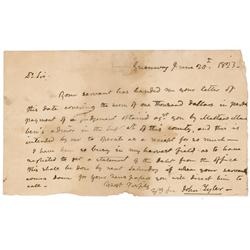 Greenway June 20th 1823
Dr Sir
Your servant has handed me your letter of
this date covering the sum of one thousand dollars in part
payment of a judgement obtained agst you by
in the of this county, and this is
intended by me to a receipt for as much—
I have been so busy in my harvest field as to have
neglected to get a statement of the debt from the office
This shall be done by next Saturday when your servant
comes down for your News papers you will direct him to
call—
John Tyler